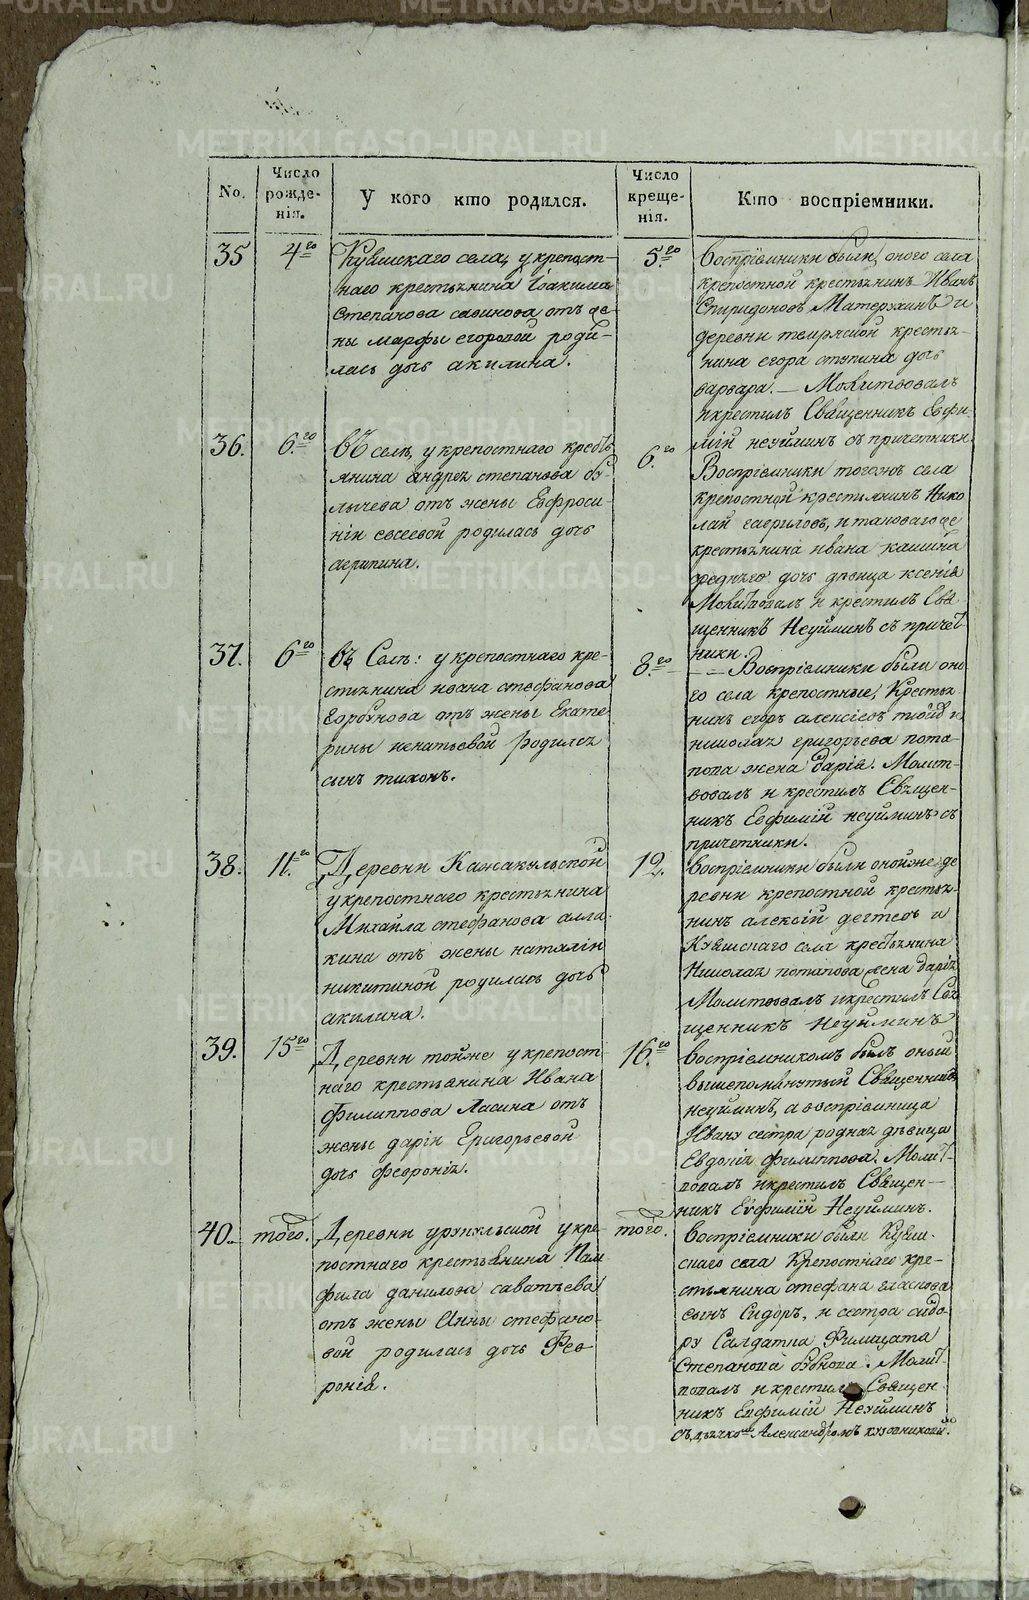 No.
Число рожде-
нія.
У кого кто родился.
Число креще-
нія.
Кто воспріемники.
35
4го
Кувшскаго села, у крепост-
наго крестьянина Іоакима
Степанова савинова отъ же-
ны марфы егоровой роди-
лась дочь акилина.
5го
Воспріемники были, оного села
крепостной крестьянинъ Иванъ
Спиридоновъ Матерухинъ и
деревни крестья-
нина егора ступина дочь
варвара. — Молитвовалъ
и крестилъ Священникъ Евфи-
мій неуйминъ съ причетники
36.
6го
въ селѣ, у крепостнаго кресть
янина андрея степанова бу-
лычева отъ жены Евфроси
ніи евсеевой родилась дочь
агрипина.
6го
Воспріемники тогожъ села
крепостной крестьянинъ Нико
лай гавриловъ, и таковаго же
крестьянина ивана кашина
дочь девица ксенія
Молитвовалъ и крестилъ Свя
щенникъ Неуйминъ съ причет
ники.
37.
6го
въ Селѣ: у крепостнаго кре-
стьянина ивана стефанова
Горбунова отъ жены Екате-
рины игнатьевой родился
сынъ тихонъ.
8го
— Воспріемники были оно
го села крепостные, Крестья
нинъ егоръ алексіевъ и
николая григорьева пота-
пова жена Дарія. Молит-
вовалъ и крестилъ Священ-
никъ Евфимій неуйминъ съ
причетники.
38.
11го
Деревни Кажакульской
у крепостнаго крестьянина
Михайла стефанова
отъ жены наталіи
никитиной родилась дочь
акилина.
12.
воспріемники были онойже де
ревни крепостной крестья-
нинъ алексій дегтевъ и
Кувшскаго села крестьянина
Николая потапова жена дарія
Молитвовалъ и крестилъ Свя
щенникъ Неуйминъ
39.
15го
Деревни тойже у крепост
наго крестьянина Ивана
Филиппова Ласина отъ
жены даріи Григорьевой
дочь февронія.
16го
воспріемникомъ былъ оный
вышепомянутый Священникъ
неуйминъ, а воспріемница
Ивану сестра родная дѣвица
Евдокія филиппова. Молит-
вовалъ и крестилъ Священ-
никъ Евфимій Неуйминъ.
40.
того.
Деревни у кре-
постнаго крестьянина Пам
фила данилова саватѣева
отъ жены Анны стефано-
вой родилась дочь Фев
ронія.
того.
воспріемники были Кувш-
скаго села Крепостнаго кре-
стьянина стефана гласкова
сынъ Сидоръ, и сестра сидо-
ру Салдатка Филицата
Степанова бубнова. Молит
вовалъ и крестилъ Священ
никъ Евфимій Неуйминъ
съ дьячкомъ Александромъ
METRIKI.GASO-URAL.RU